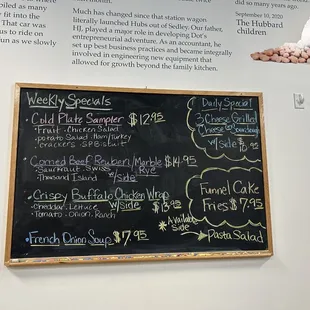 Much has changed since that station wagon
literally launched Hubs out of Sedley. Our father,
HJ, played a major role in developing our
entrepreneurial adventure. As an accountant, he
set up best business practices and became integrally
involved in engineering new equipment that
allowed for growth beyond the family kitchen.
That car was
to ride on
us as slowly
so many years ago.
September 10, 2020
The Hubbard
children
Weekly Specials
Cold Plate Sampler $12.95
Fruit. Chicken Salad
Potato Salad. Ham/Turkey
crackers
Corned Beef Reuben/Marble Rye $14.95
Saurkraut. Swiss
Thousand Island w/side
Crispy Buffalo Chicken Wrap
Cheddar. Lettuce w/side $13.95
Tomato. Onion. Ranch
French Onion Soup $7.95
Daily Special
3 Cheese Grilled
Cheese
w/side
Funnel Cake
Fries $7.95
*Available
Side
Pasta Salad